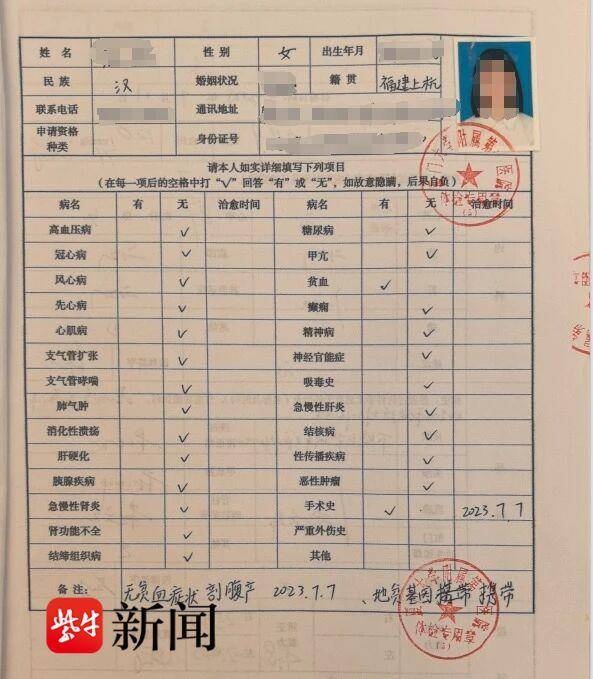 姓 名 性 别 女 出生年月
民 族 汉 婚姻状况 籍 贯 福建上杭
联系电话 通讯地址
申请资格种类 身份证号
请本人如实详细填写下列项目
(在每一项后的空格中打“√”回答“有”或“无”,如故意隐瞒,后果自负)
病名 有 无 治愈时间 病名 有 无 治愈时间
高血压病 ✓ 糖尿病 ✓
冠心病 ✓ 甲亢 ✓
风心病 ✓ 贫血 ✓
先心病 ✓ 癫痫 ✓
心肌病 ✓ 精神病 ✓
支气管扩张 ✓ 神经官能症 ✓
支气管哮喘 ✓ 吸毒史 ✓
肺气肿 ✓ 急慢性肝炎 ✓
消化性溃疡 ✓ 结核病 ✓
肝硬化 ✓ 性传播疾病 ✓
胰腺疾病 ✓ 恶性肿瘤 ✓
急慢性肾炎 ✓ 手术史 ✓ 2023.7.7
肾功能不全 ✓ 严重外伤史
结缔组织病 ✓ 其他
备注: 无贫血症状 剖腹产 2023.7.7 、地贫基因携带 携带
门大学附属第
医院
体检专用章
(3)
大学附属第
医院
体检专用章
紫牛新闻